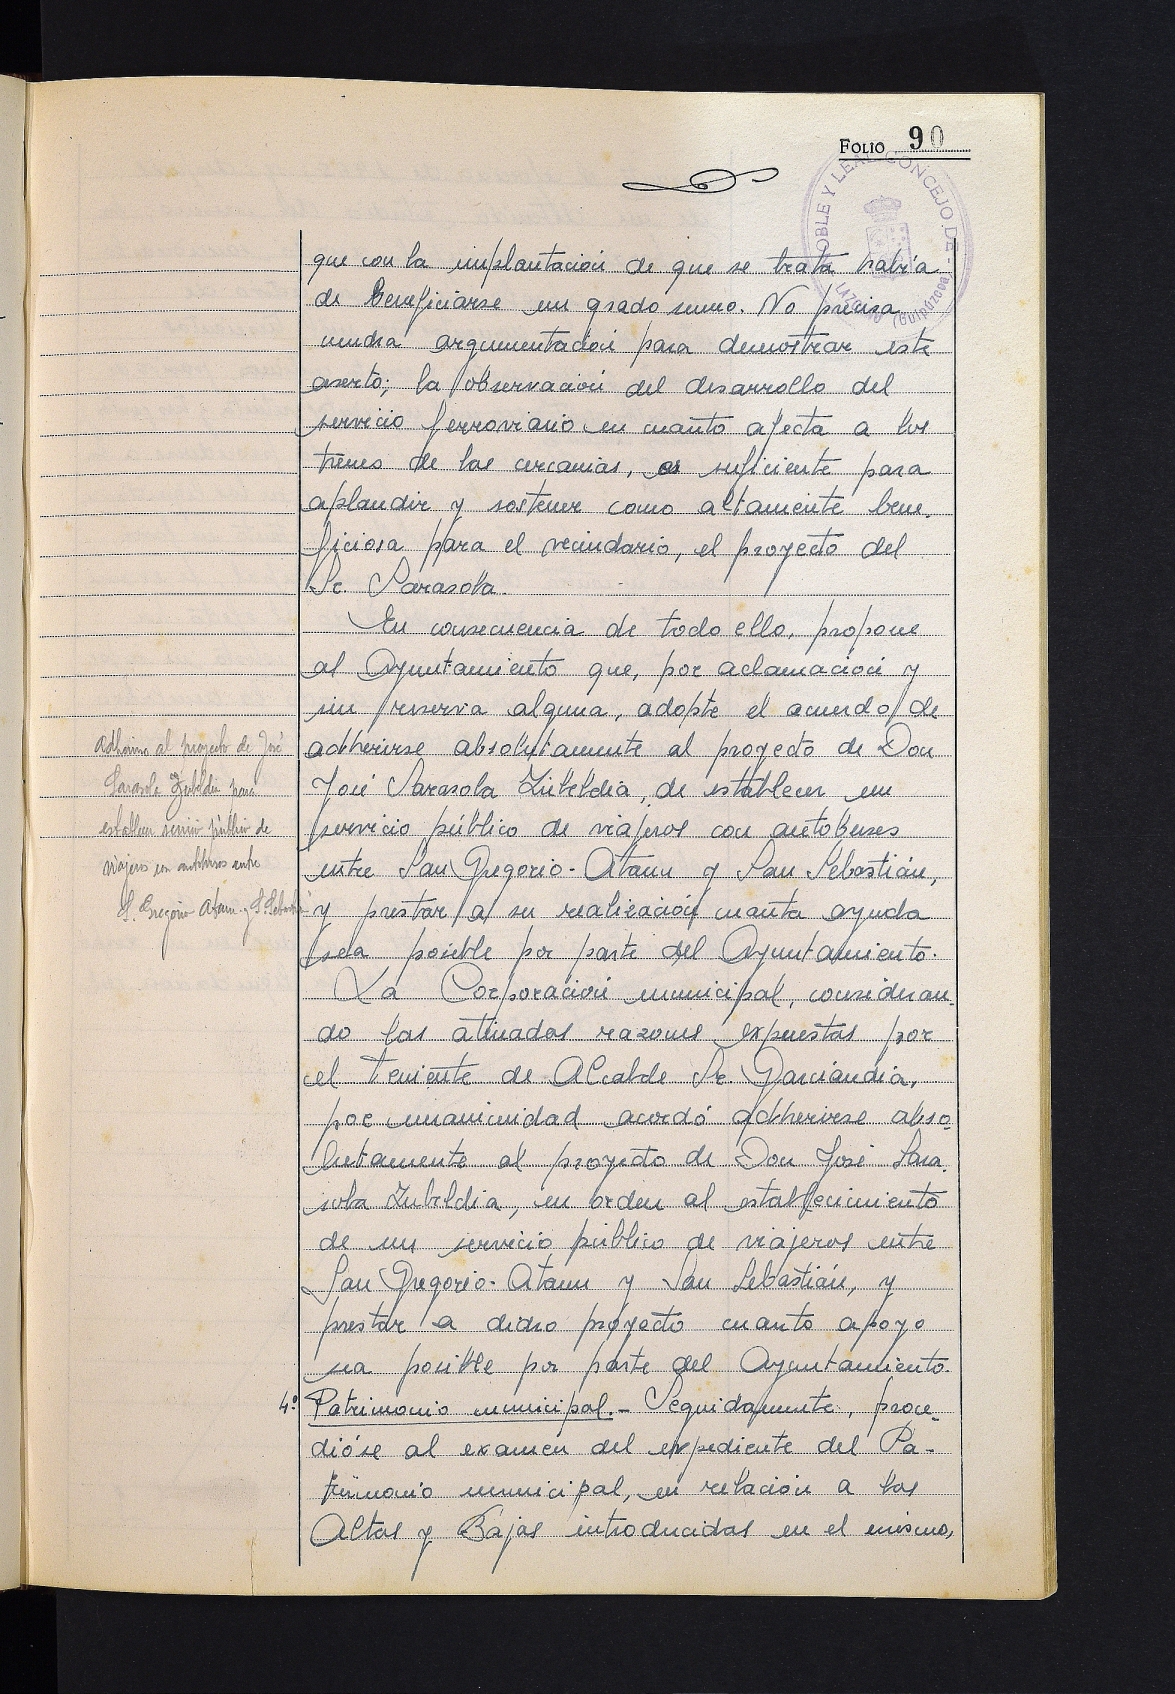 FOLIO 90
NOBLE Y LEAL CONCEJO DE - LAZCANO (Guipúzcoa)
que con la implantación de que se trata habría
de beneficiarse en grado sumo. No precisa
mucha argumentación para demostrar este
aserto; la observación del desarrollo del
servicio ferroviario en cuanto afecta a los
trenes de las cercanias, es suficiente para
aplaudir y sostener como altamente bene-
ficiosa para el vecindario, el proyecto del
Sr. Sarasola.
En consecuencia de todo ello, propone
al Ayuntamiento que, por aclamación y
sin reserva alguna, adopte el acuerdo de
adherirse absolutamente al proyecto de Don
José Sarasola Zubeldia, de establecer un
servicio público de viajeros con autobuses
entre San Gregorio-Ataun y San Sebastián,
y prestar a su realización cuanta ayuda
sea posible por parte del Ayuntamiento.
Adherirse al proyecto de José
Sarasola Zubeldia para
establecer servicio público de
viajeros con autobuses entre
S. Gregorio Ataun y S. Sebastián
La Corporación municipal, consideran-
do las atinadas razones expuestas por
el Teniente de Alcalde Sr. Garciandia,
por unanimidad acordó adherirse abso-
lutamente al proyecto de Don José Sara-
sola Zubeldia, en orden al establecimiento
de un servicio público de viajeros entre
San Gregorio-Ataun y San Sebastián, y
prestar a dicho proyecto cuanto apoyo
sea posible por parte del Ayuntamiento.
4º Patrimonio municipal.- Seguidamente, proce-
dióse al examen del expediente del Pa-
trimonio municipal, en relación a las
Altas y Bajas introducidas en el mismo,